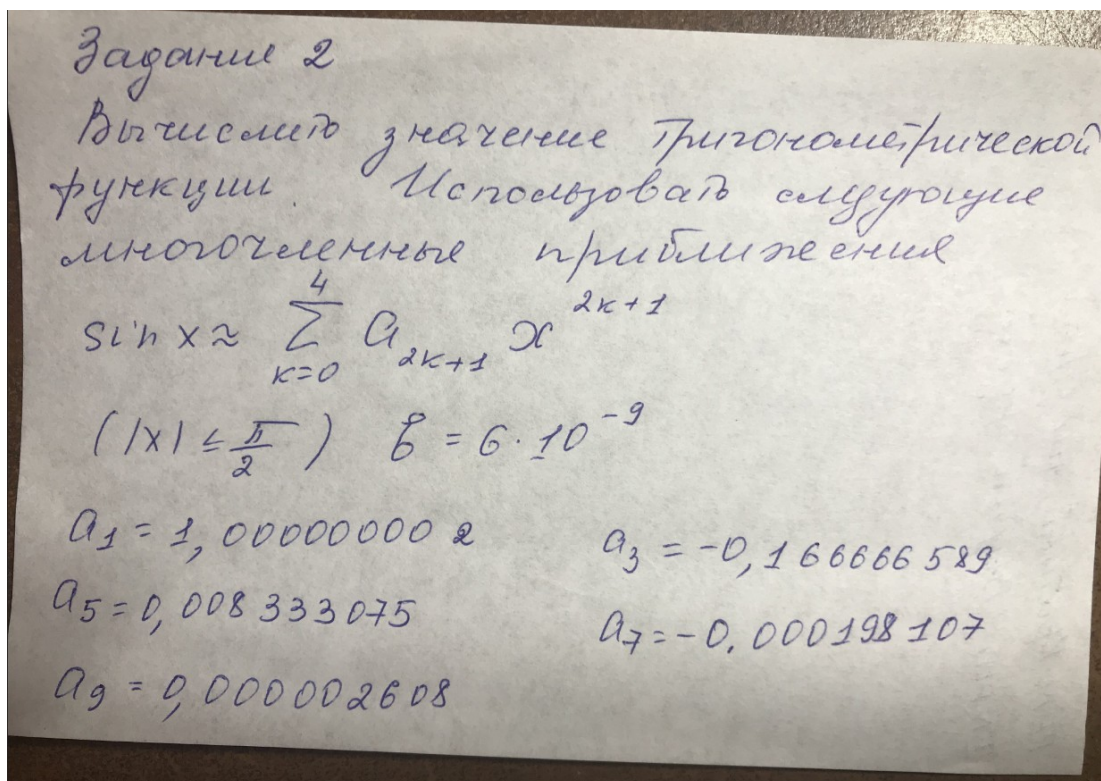 Задание 2
Вычислить значение тригонометрической
функции. Использовать следующие
многочленные приближения
sin x ≈ ∑_{k=0}^{4} a_{2k+1} x^{2k+1}
(|x| ≤ π/2) ε = 6·10^{-9}
a_1 = 1,000000002 a_3 = -0,166666589
a_5 = 0,008333075 a_7 = -0.000198107
a_9 = 0,000002608